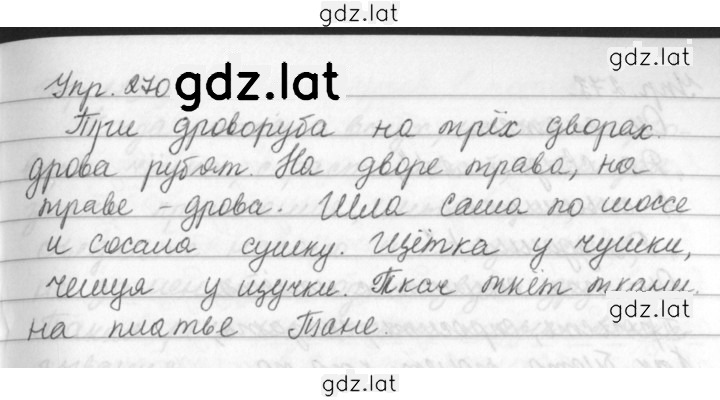 gdz.lat
gdz.lat
Упр. 270 gdz.lat
Три дроворуба на трёх дворах
дрова рубят. На дворе трава, на
траве - дрова. Шла саша по шоссе
и сосала сушку. Щётка у чушки,
чешуя у щучки. Ткач ткёт ткани
gdz.lat
на платье Тане.
gdz.lat